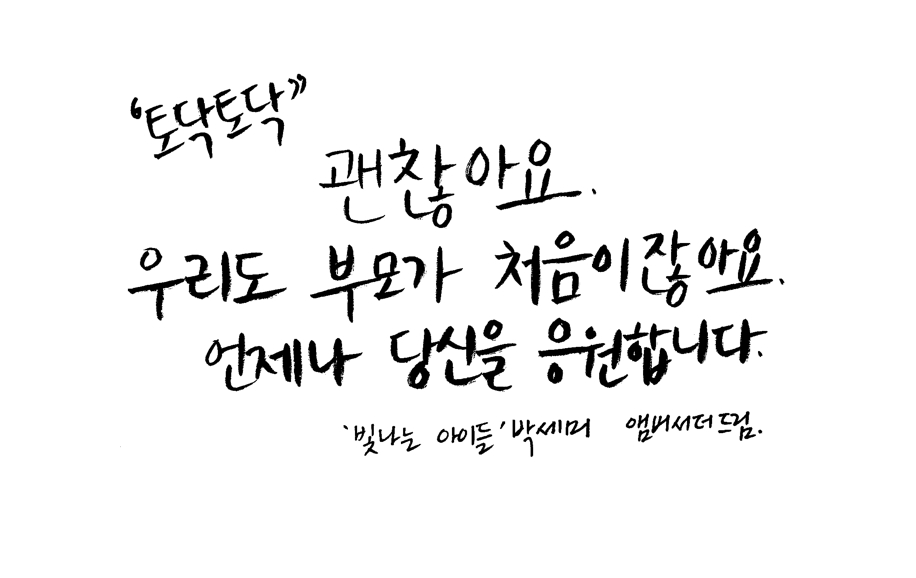 “토닥토닥”
괜찮아요.
우리도 부모가 처음이잖아요.
언제나 당신을 응원합니다.
'빛나는 아이들' 박세미 앰버서더 드림.